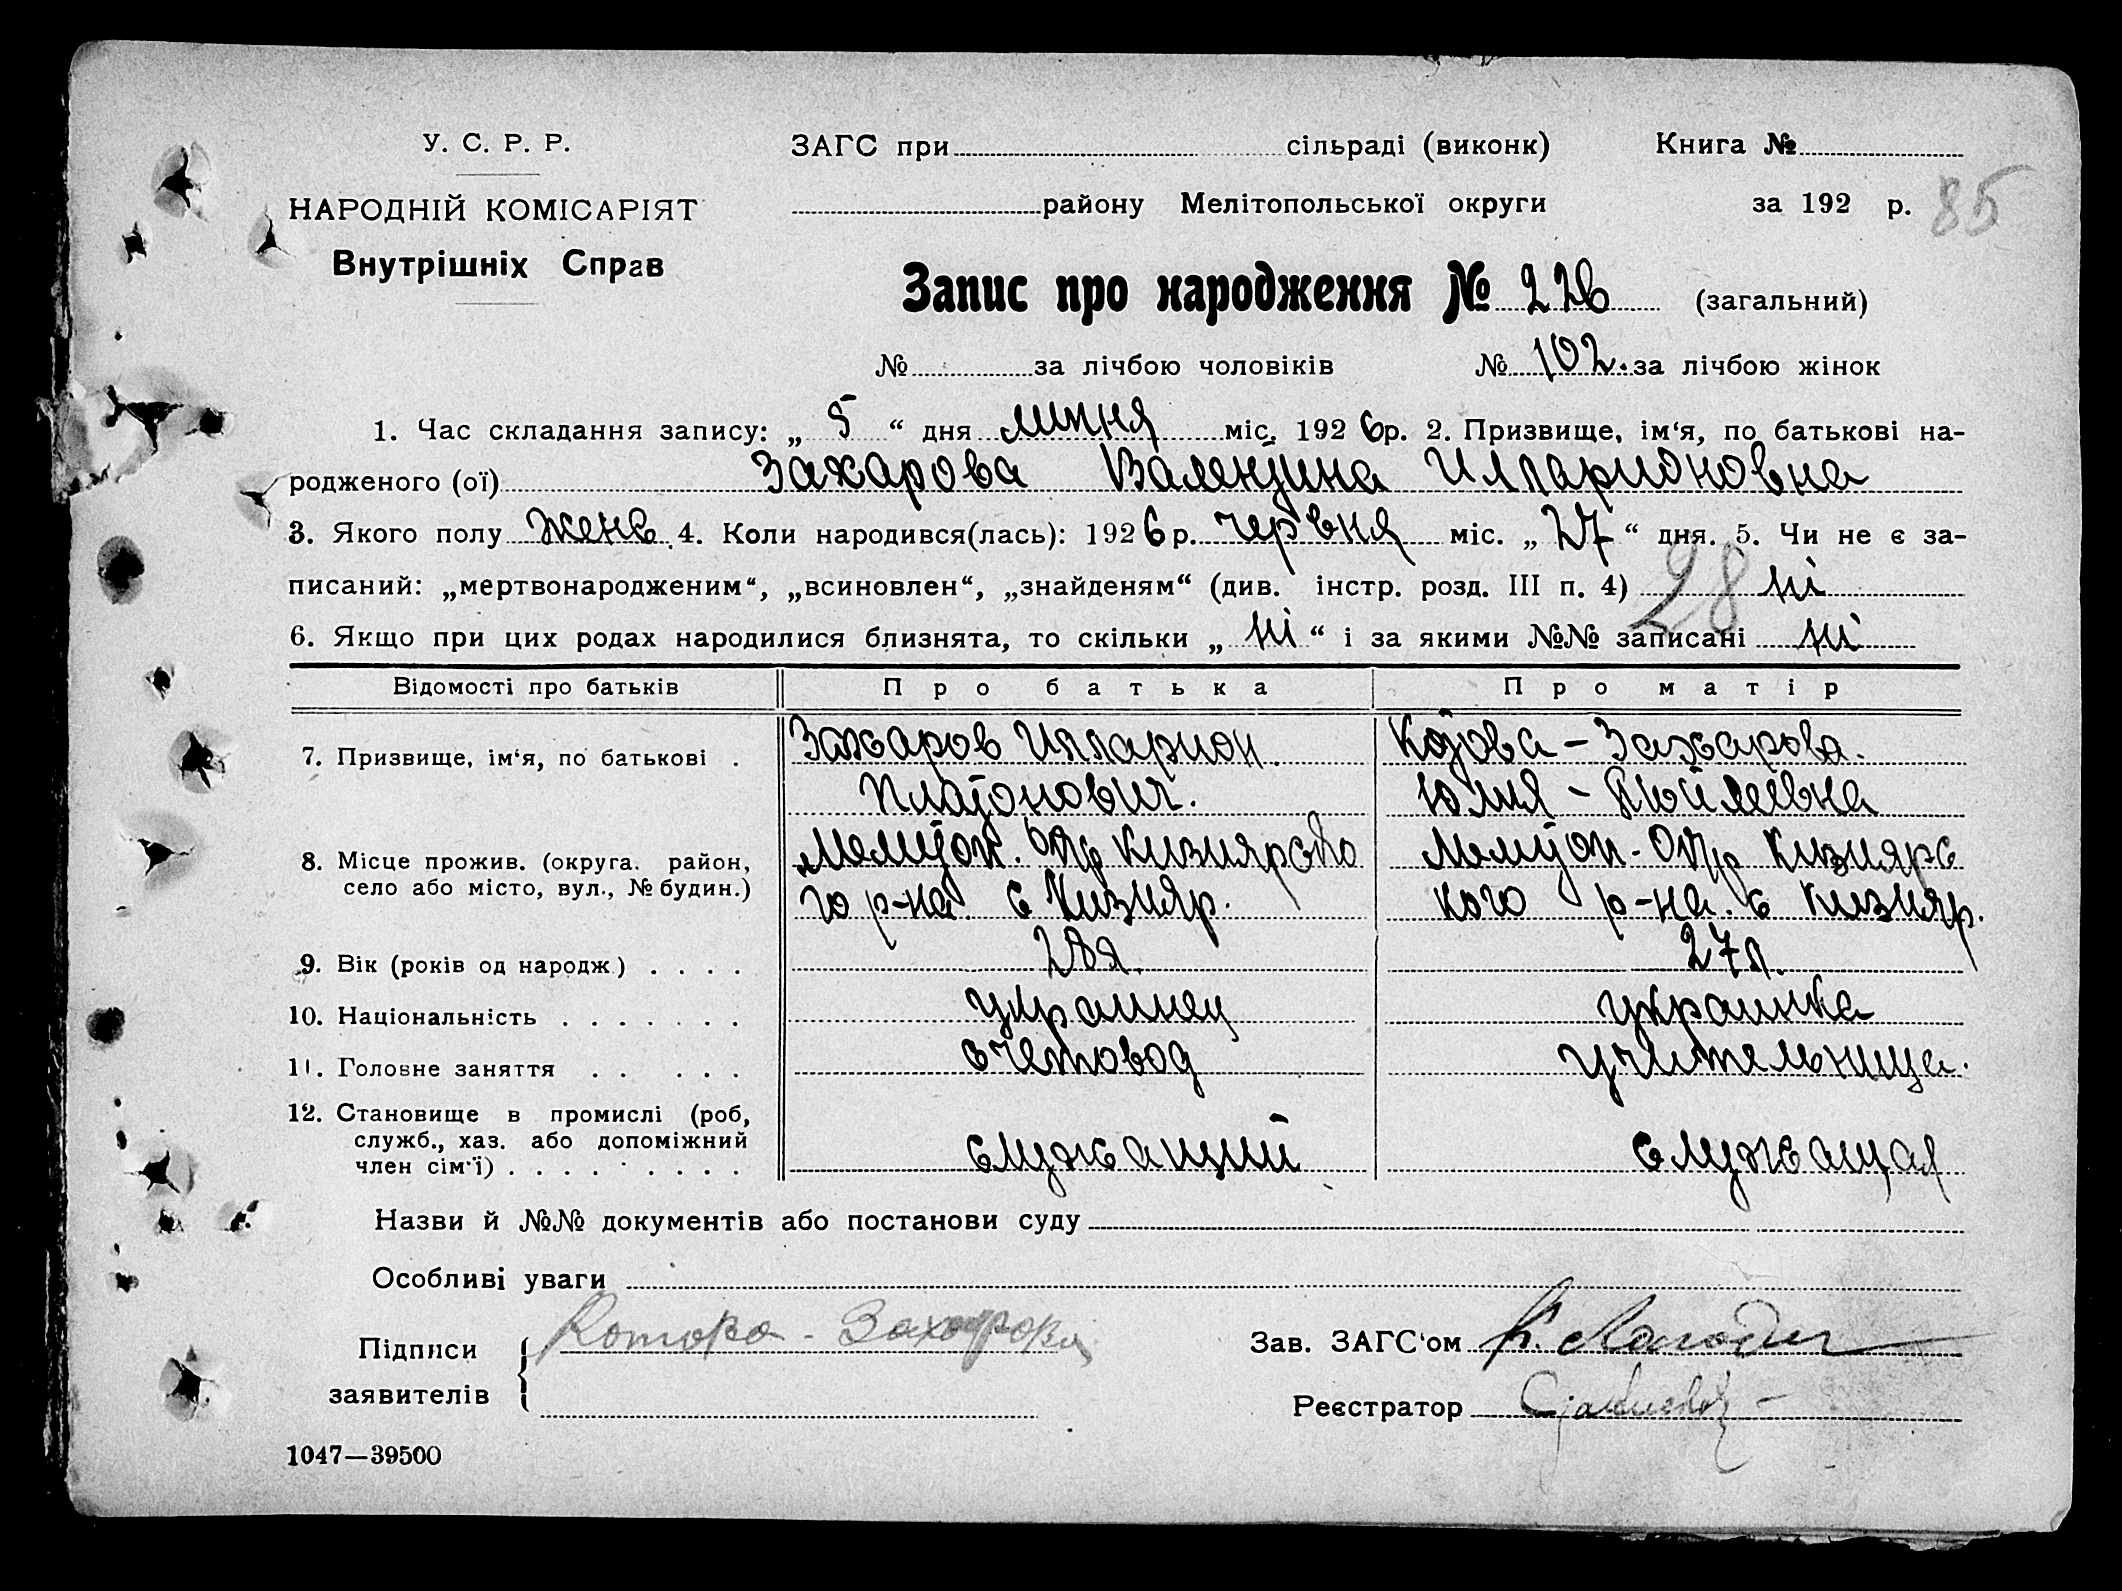 У. С. Р. Р.
НАРОДНІЙ КОМІСАРІЯТ
Внутрішніх Справ
ЗАГС при сільраді (виконк) Книга №
району Мелітопольської округи за 192 р. 85
Запис про народження № 226 (загальний)
№ за лічбою чоловіків № 102. за лічбою жінок
1. Час складання запису: „ 5 “ дня липня міс. 1926 р. 2. Призвище, ім‘я, по батькові на-
родженого (ої) Захарова Валентина Илларионовна
3. Якого полу женс 4. Коли народився(лась): 1926 р. червня міс. „ 27 “ дня. 5. Чи не є за-
писаний: „мертвонародженим“, „всиновлен“, „знайденям“ (див. інстр. розд. III п. 4) 28 ні
6. Якщо при цих родах народилися близнята, то скільки „ ні “ і за якими №№ записані ні
Відомості про батьків Про батька Про матір
7. Призвище, ім‘я, по батькові . Захаров Илларион Котова - Захарова.
Платонович. Юлия -
8. Місце прожив. (округа. район, Мелитоп. Окр Кизиярско Мелитоп - Окр Кизиярс
село або місто, вул., № будин.) го р-на. с Кизияр. кого р-на. с Кизияр.
9. Вік (років од народж.) . . . . 28л. 27л.
10. Національність . . . . . . . украинец украинка
11. Головне заняття . . . . . счетовод учительница.
12. Становище в промислі (роб,
служб., хаз. або допоміжний служащий служащая
член сім‘ї) . . . . . . . . .
Назви й №№ документів або постанови суду
Особливі уваги
Підписи Котова - Захарова Зав. ЗАГС‘ом
заявителів Реєстратор
1047—39500